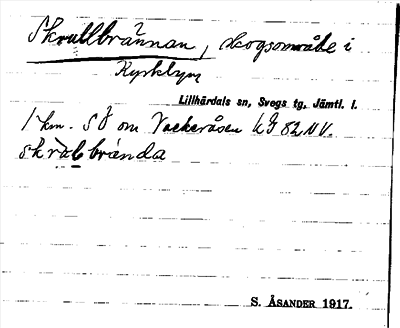 Skrullbrännan, skogsområde i
Kyrkbyn
Lillhärdals sn, Svegs tg, Jämtl. l.
1 km. SÖ om Vackeråsen kG 82 NV.
skralbrända
S. ÅSANDER 1917.